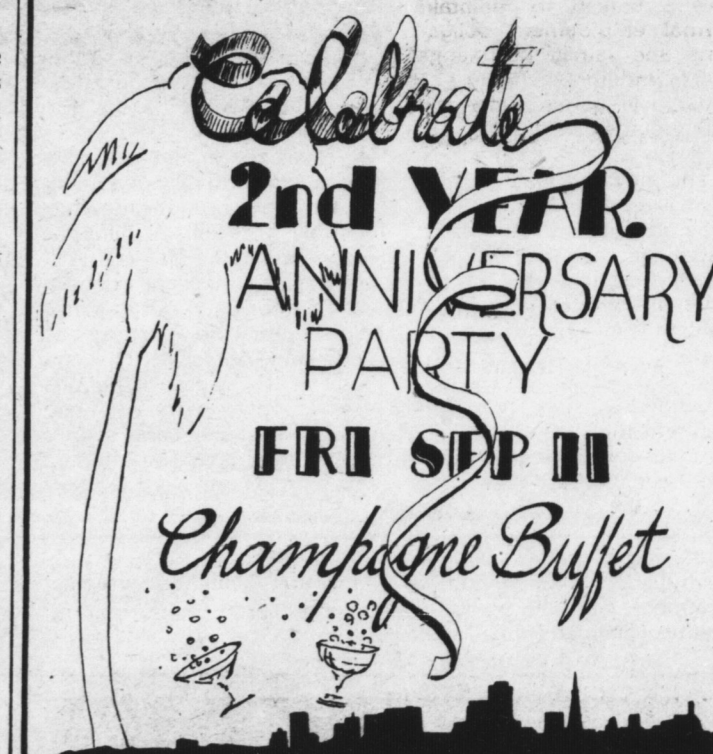 Celebrate
2nd YEAR
ANNIVERSARY
PARTY
FRI SEP 11
Champagne Buffet